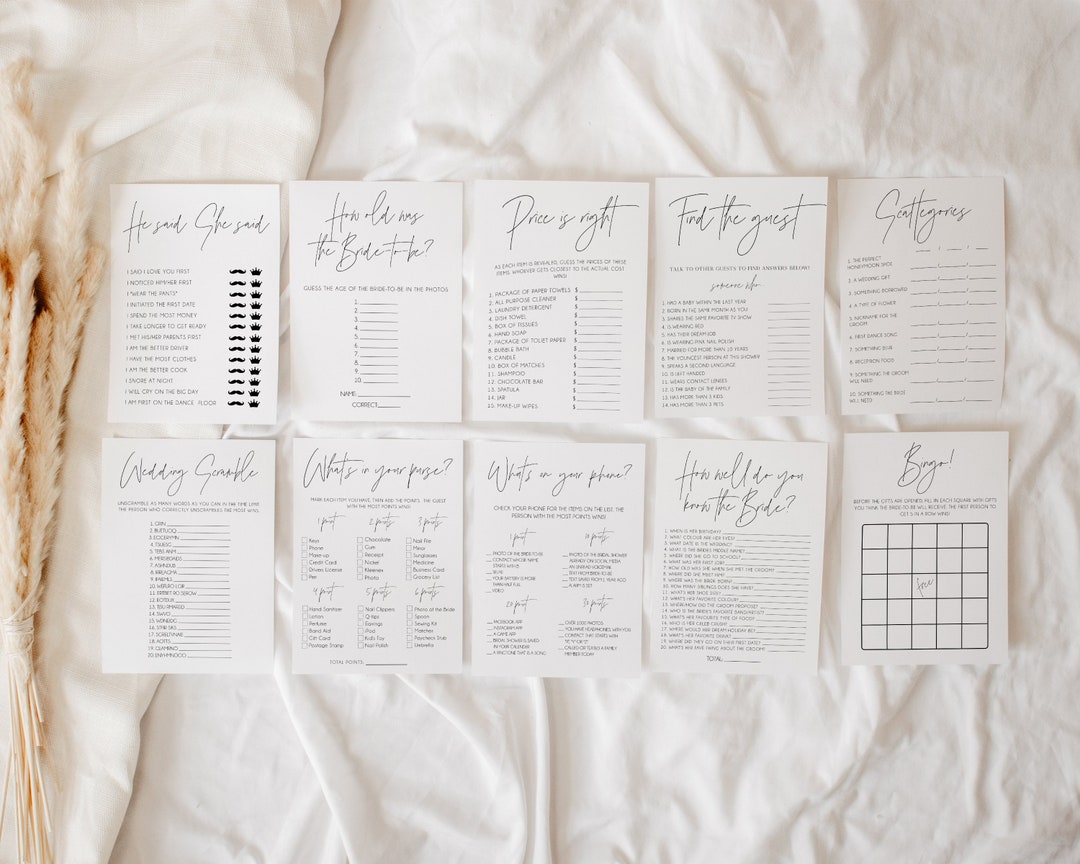 He said She said
I SAID I LOVE YOU FIRST
I NOTICED HIM/HER FIRST
I "WEAR THE PANTS"
I INITIATED THE FIRST DATE
I SPEND THE MOST MONEY
I TAKE LONGER TO GET READY
I MET HIS/HER PARENTS FIRST
I AM THE BETTER DRIVER
I HAVE THE MOST CLOTHES
I AM THE BETTER COOK
I SNORE AT NIGHT
I WILL CRY ON THE BIG DAY
I AM FIRST ON THE DANCE FLOOR
How old was
the Bride-to-be?
GUESS THE AGE OF THE BRIDE-TO-BE IN THE PHOTOS
1.
2.
3.
4.
5.
6.
7.
8.
9.
10.
NAME:
CORRECT:
Price is right
AS EACH ITEM IS REVEALED, GUESS THE PRICES OF THESE
ITEMS. WHOEVER GETS CLOSEST TO THE ACTUAL COST
WINS!
1. PACKAGE OF PAPER TOWELS $
2. ALL PURPOSE CLEANER $
3. LAUNDRY DETERGENT $
4. DISH TOWEL $
5. BOX OF TISSUES $
6. HAND SOAP $
7. PACKAGE OF TOILET PAPER $
8. BUBBLE BATH $
9. CANDLE $
10. BOX OF MATCHES $
11. SHAMPOO $
12. CHOCOLATE BAR $
13. SPATULA $
14. JAR $
15. MAKE-UP WIPES $
Find the guest
TALK TO OTHER GUESTS TO FIND ANSWERS BELOW!
someone who:
1. HAD A BABY WITHIN THE LAST YEAR
2. BORN IN THE SAME MONTH AS YOU
3. SHARES THE SAME FAVORITE TV SHOW
4. IS WEARING RED
5. HAS THEIR DREAM JOB
6. IS WEARING PINK NAIL POLISH
7. MARRIED FOR MORE THAN 10 YEARS
8. THE YOUNGEST PERSON AT THIS SHOWER
9. SPEAKS A SECOND LANGUAGE
10. IS LEFT HANDED
11. WEARS CONTACT LENSES
12. IS THE BABY OF THE FAMILY
13. HAS MORE THAN 3 KIDS
14. HAS MORE THAN 2 PETS
Scattegories
1. THE PERFECT
HONEYMOON SPOT
2. A WEDDING GIFT
3. SOMETHING BORROWED
4. A TYPE OF FLOWER
5. NICKNAME FOR THE
GROOM
6. FIRST DANCE SONG
7. SOMETHING BLUE
8. RECEPTION FOOD
9. SOMETHING THE GROOM
WILL NEED
10. SOMETHING THE BRIDE
WILL NEED
Wedding Scramble
UNSCRAMBLE AS MANY WORDS AS YOU CAN IN THE TIME LIMIT
THE PERSON WHO CORRECTLY UNSCRAMBLES THE MOST WINS.
1. GRIN
2. BUETUOQ
3. ECCERYMN
4. TSUEGS
What's in your purse?
MARK EACH ITEM YOU HAVE, THEN ADD THE POINTS. THE GUEST
WITH THE MOST POINTS WINS!
1 point 2 points 3 points
Keys Chocolate Nail File
Phone Gum Mirror
Make-up Receipt Sunglasses
Credit Card Nickel Medicine
Drivers License Kleenex Business Card
Pen Photo Grocery List
4 points 5 points 6 points
Hand Sanitizer Nail Clippers Photo of the Bride
Lotion Q-tips Spoon
Perfume Earrings Sewing Kit
Band Aid iPod Matches
Gift Card Kid's Toy Paycheck Stub
Postage Stamp Nail Polish Umbrella
TOTAL POINTS:
What's in your phone?
CHECK YOUR PHONE FOR THE ITEMS ON THE LIST. THE
PERSON WITH THE MOST POINTS WINS!
1 point 10 points
PHOTO OF THE BRIDE-TO-BE
CONTACT WHOSE NAME
STARTS WITH B
BLUE
YOUR BATTERY IS MORE
THAN HALF FULL
VIDEO
PHOTO OF THE BRIDAL SHOWER
ALREADY ON SOCIAL MEDIA
AN UNREAD VOICEMAIL
TEXT FROM BRIDE-TO-BE
TEXT SAVED FROM 1 YEAR AGO
ALARM IS SET
20 points 30 points
FACEBOOK APP
INSTAGRAM APP
A GAME APP
BRIDAL SHOWER IS SAVED
IN YOUR CALENDER
A RINGTONE THAT IS A SONG
OVER 1000 PHOTOS
YOU HAVE HEADPHONES WITH YOU
CONTACT THAT STARTS WITH
CALLED OR TEXTED A FAMILY
MEMBER TODAY
How well do you
know the Bride?
1. WHEN IS HER BIRTHDAY?
2. WHAT COLOUR ARE HER EYES?
3. WHAT DATE IS THE WEDDING?
4. WHAT IS THE BRIDE'S MIDDLE NAME?
5. WHERE DID SHE GO TO SCHOOL?
6. WHAT WAS HER FIRST JOB?
7. HOW OLD WAS SHE WHEN SHE MET THE GROOM?
8. WHERE DID SHE MEET HIM?
9. WHERE WAS THE BRIDE BORN?
10. HOW MANY SIBLINGS DOES SHE HAVE?
11. WHAT'S HER SHOE SIZE?
12. WHAT'S HER FAVORITE COLOUR?
13. WHERE/HOW DID THE GROOM PROPOSE?
14. WHO IS THE BRIDE'S FAVORITE BAND/ARTIST?
15. WHAT'S HER FAVOURITE TYPE OF FOOD?
16. WHO IS HER CELEB CRUSH?
17. WHERE WOULD HER DREAM HOLIDAY BE?
18. WHAT'S HER FAVORITE DRINK?
19. WHERE DID THEY GO ON THEIR FIRST DATE?
20. WHAT'S HER FAVE THING ABOUT THE GROOM?
TOTAL:
Bingo!
BEFORE THE GIFTS ARE OPENED, FILL IN EACH SQUARE WITH GIFTS
YOU THINK THE BRIDE-TO-BE WILL RECEIVE. THE FIRST PERSON TO
GET 5 IN A ROW WINS!
free